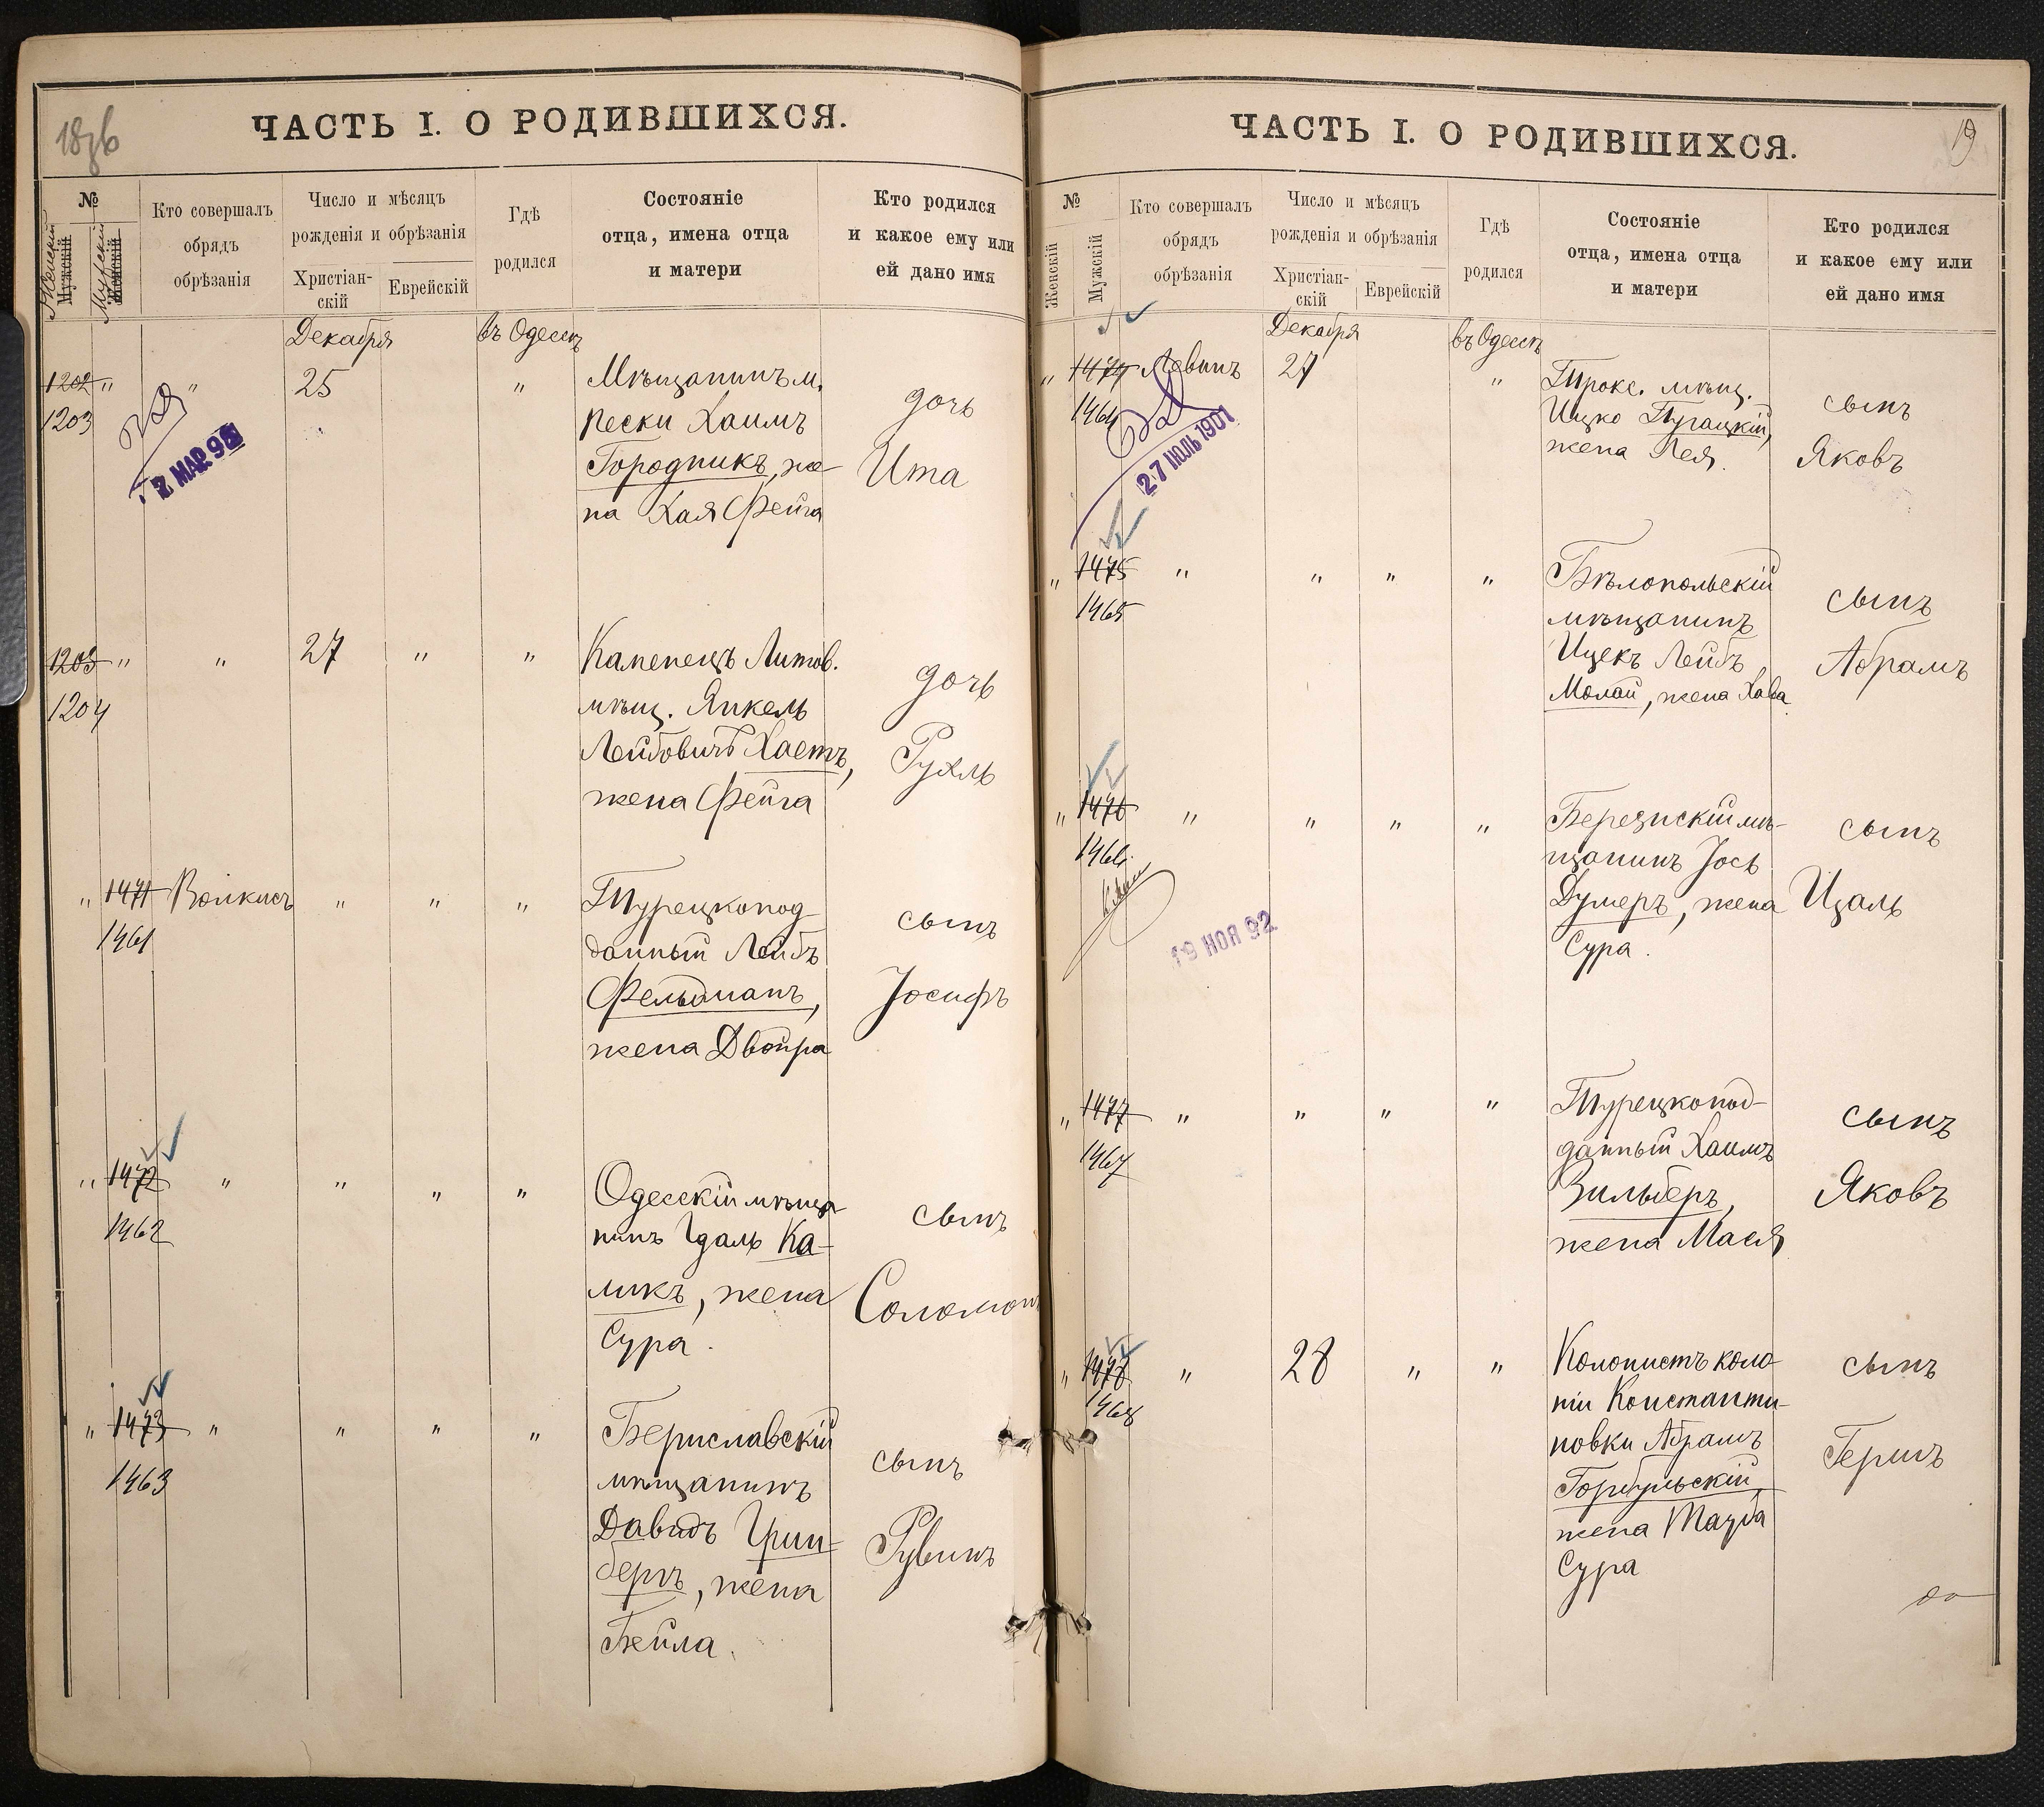 18об
ЧАСТЬ I. О РОДИВШИХСЯ.
№
Женскій
Мужскій
Мужскій
Женскій
Кто совершалъ
обрядъ
обрѣзанія
Число и мѣсяцъ
рожденія и обрѣзанія
Христіан-
скій
Еврейскій
Гдѣ
родился
Состояніе
отца, имена отца
и матери
Кто родился
и какое ему или
ей дано имя
Декабря
въ Одессѣ
1202 "
1203
"
2 МАР. 98
25
"
Мѣщанинъ м.
Пески Хаимъ
Городникъ, же-
на Хая Фейга
дочь
Ита
1203 "
1204
"
27
"
"
Каменецъ Литов.
мѣщ. Янкель
Лейбовичъ Хаетъ,
жена Фейга
дочь
Рухль
" 1471
1461
Волкисъ
"
"
"
Турецкопод-
данный Лейбъ
Фельдманъ,
жена Двойра
сынъ
Іосифъ
" 1472
1462
"
"
"
"
Одесскій мѣща-
нинъ Идаль Ка-
ликъ, жена
Сура.
сынъ
Соломонъ
" 1473
1463
"
"
"
"
Бериславскій
мѣщанинъ
Давидъ Грин-
бергъ, жена
Бейла.
сынъ
Рувинъ
19
ЧАСТЬ I. О РОДИВШИХСЯ.
№
Женскій
Мужскій
Кто совершалъ
обрядъ
обрѣзанія
Число и мѣсяцъ
рожденія и обрѣзанія
Христіан-
скій
Еврейскій
Гдѣ
родился
Состояніе
отца, имена отца
и матери
Кто родился
и какое ему или
ей дано имя
Декабря
въ Одессѣ
" 1474
1464
Левинъ
27 ІЮЛЬ 1901
27
"
Трокс. мѣщ.
Ицко Пугацкій,
жена Лея.
сынъ
Яковъ
" 1475
1465
"
"
"
"
Бѣлопольскій
мѣщанинъ
Ицекъ Лейбъ
Молай, жена Хава
сынъ
Абрамъ
" 1476
1466
"
19 НОЯ 92
"
"
"
Березнскій мѣ-
щанинъ Іось
Думеръ, жена
Сура.
сынъ
Ицаль
" 1477
1467
"
"
"
"
Турецкопод-
данный Хаимъ
Зильберъ,
жена Мася
сынъ
Яковъ
" 1478
1468
"
28
"
"
Колонистъ коло-
ніи Константи-
новки Абрамъ
Горбульскій,
жена Тауба
Сура
сынъ
Гершъ